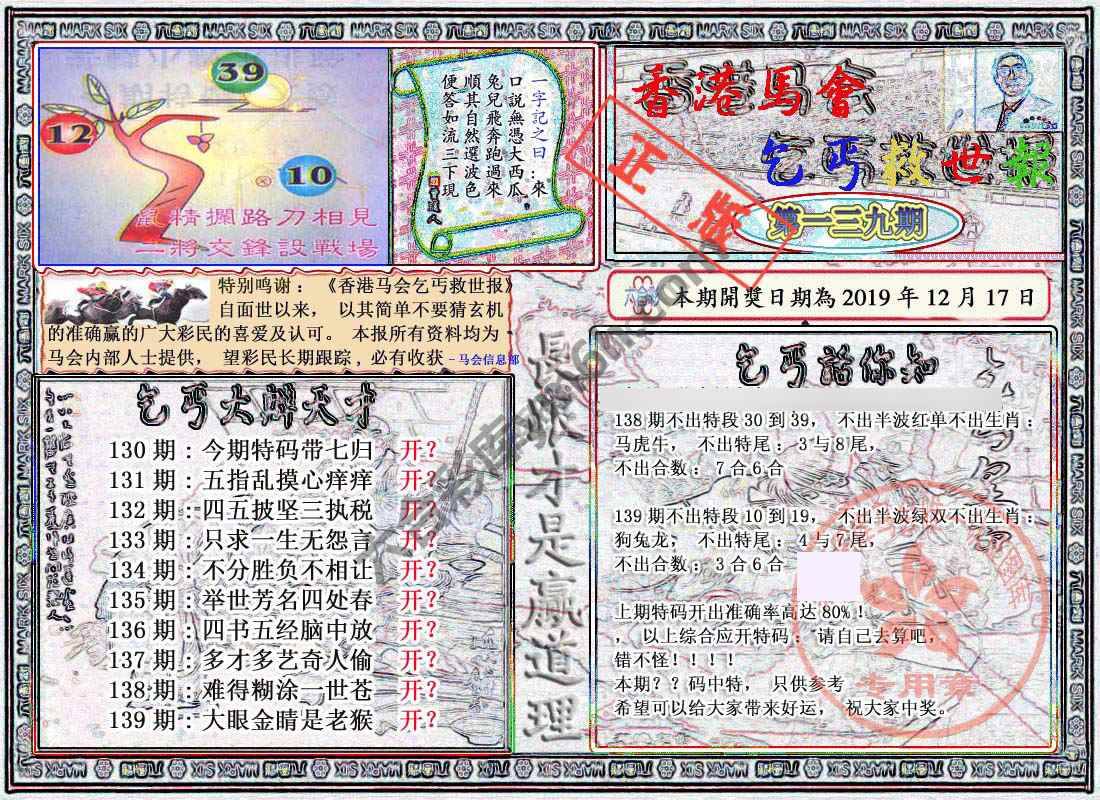 39
12
10
鼠精攔路刀相見
二將交鋒設戰場
一字記之曰：來
口說無憑大西瓜，
兔兒飛奔跑過來
順其自然選波色
便答如流三下現
香港馬會
乞丐救世報
第一三九期
正版
特别鸣谢：《香港马会乞丐救世报》
自面世以来， 以其简单不要猜玄机
的准确赢的广大彩民的喜爱及认可。 本报所有资料均为
马会内部人士提供， 望彩民长期跟踪，必有收获 - 马会信息部
本期開獎日期為 2019 年 12 月 17 日
乞丐大解天才
130 期：今期特码带七归 开？
131 期：五指乱摸心痒痒 开？
132 期：四五披坚三执税 开？
133 期：只求一生无怨言 开？
134 期：不分胜负不相让 开？
135 期：举世芳名四处春 开？
136 期：四书五经脑中放 开？
137 期：多才多艺奇人偷 开？
138 期：难得糊涂一世苍 开？
139 期：大眼金睛是老猴 开？
長跟才是赢道理
乞丐話你知
138 期不出特段 30 到 39， 不出半波红单不出生肖：
马虎牛， 不出特尾：3 与 8 尾，
不出合数：7 合 6 合
139 期不出特段 10 到 19， 不出半波绿双不出生肖：
狗兔龙， 不出特尾：4 与 7 尾，
不出合数：3 合 6 合
上期特码开出准确率高达 80%！
， 以上综合应开特码：请自己去算吧，
错不怪！！！！
本期？？码中特， 只供参考
希望可以给大家带来好运， 祝大家中奖。
专用章